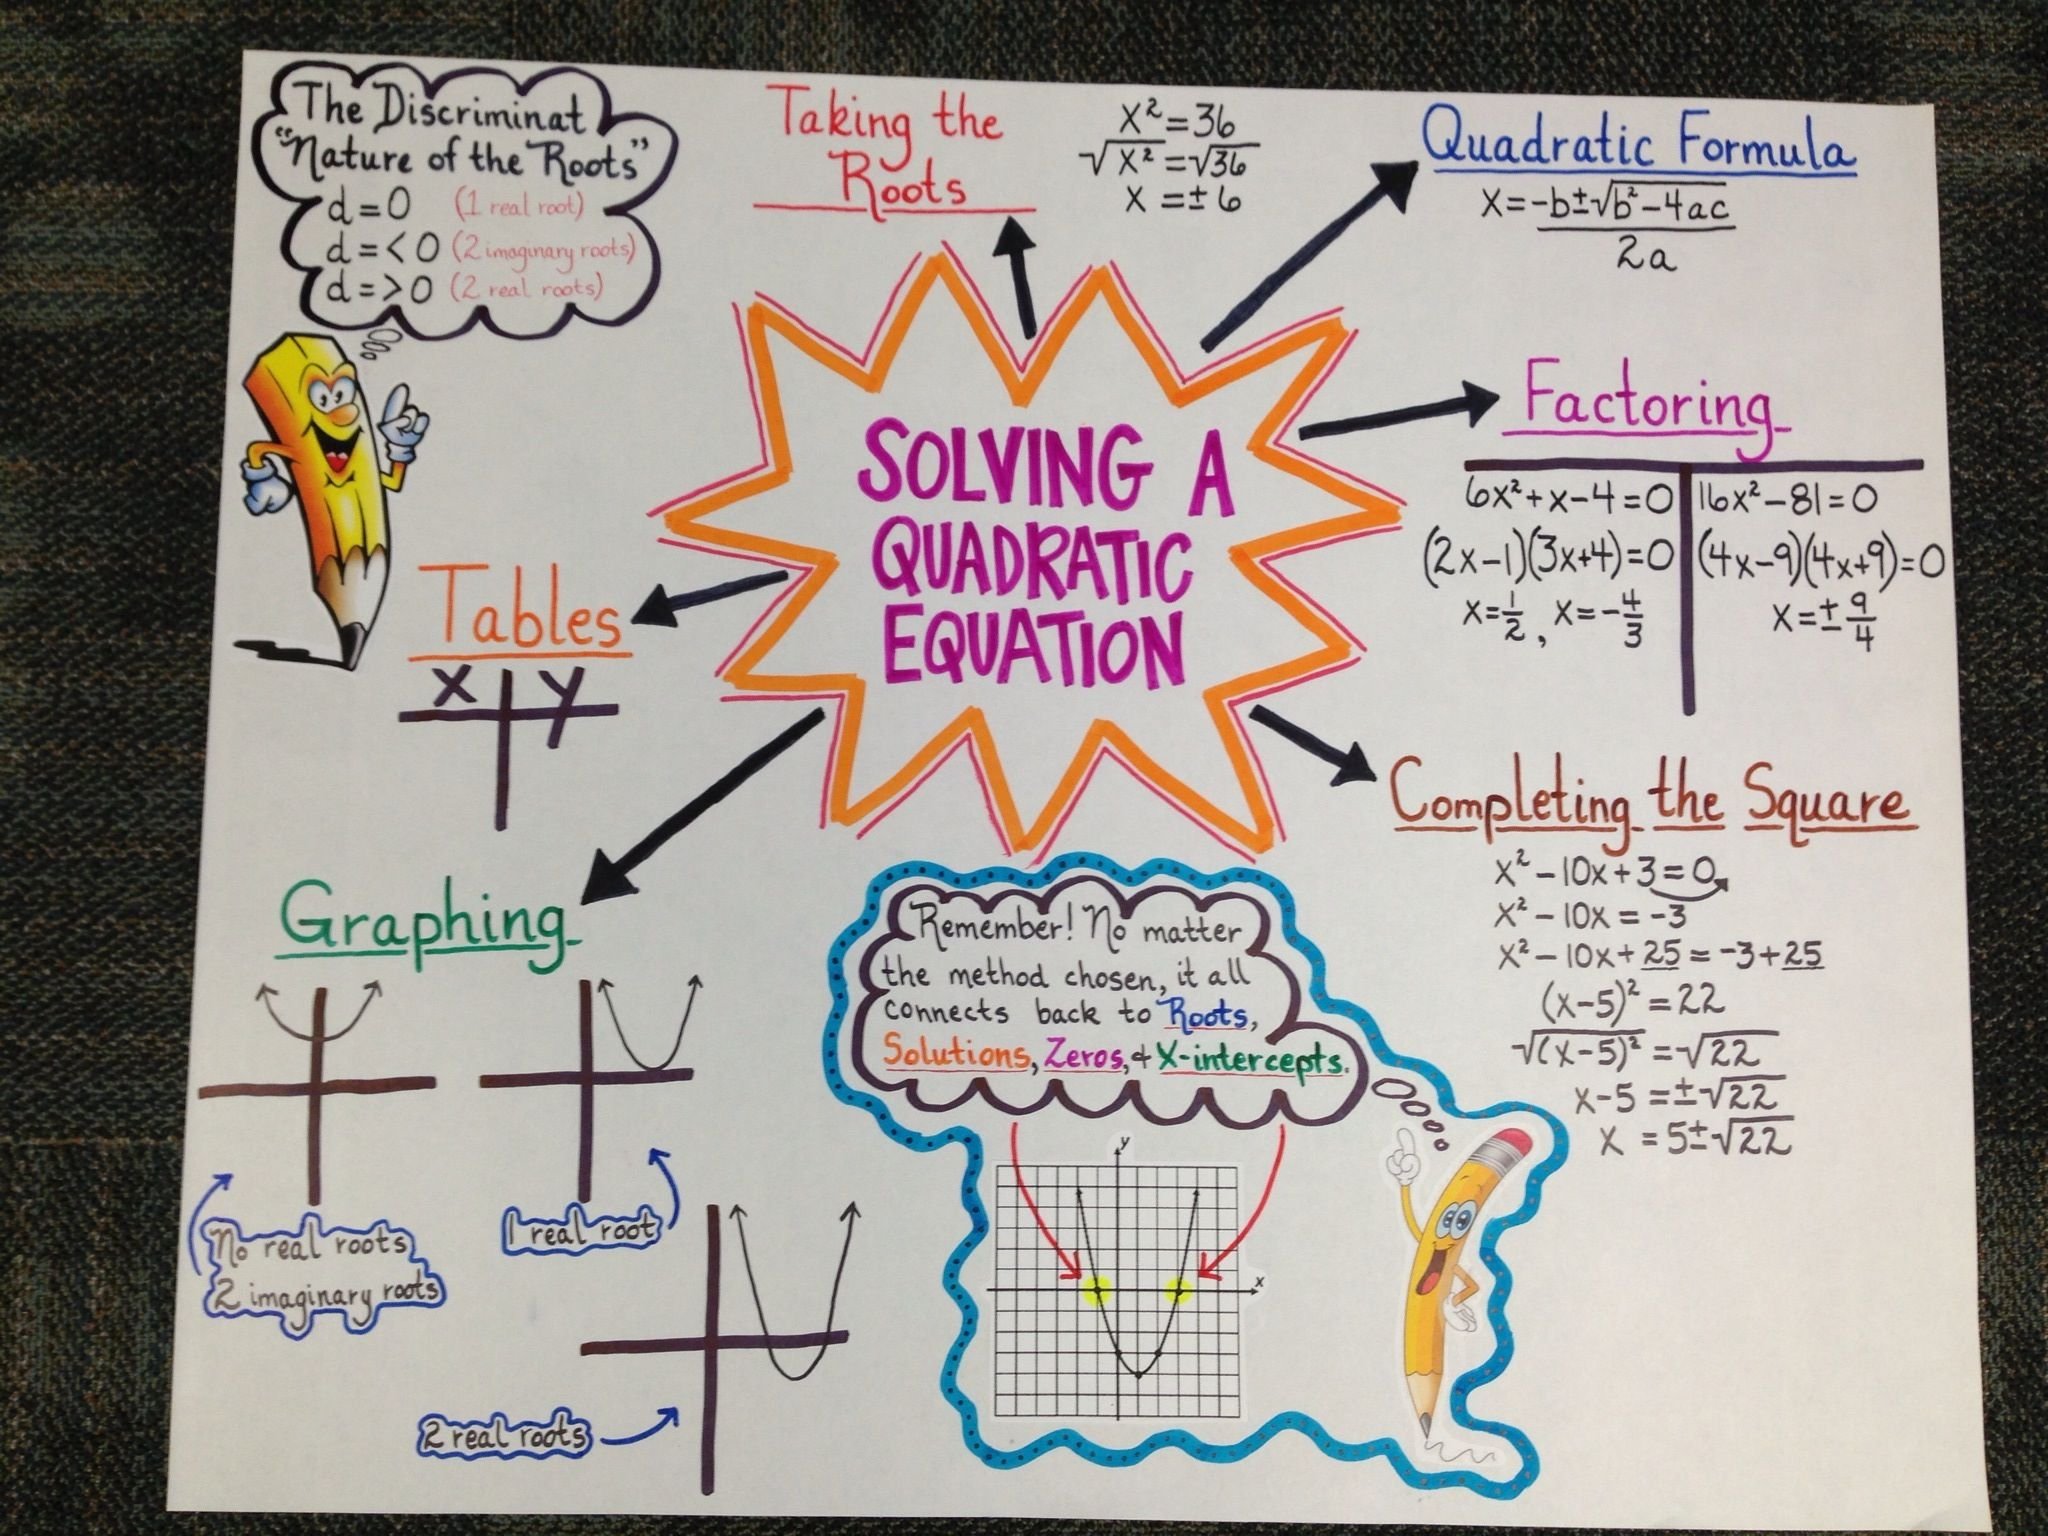 The Discriminat
"Nature of the Roots"
d = 0 (1 real root)
d = < 0 (2 imaginary roots)
d = > 0 (2 real roots)
Taking the
Roots
x² = 36
√x² = √36
x = ± 6
Quadratic Formula
x = -b±√b²-4ac
2a
SOLVING A
QUADRATIC
EQUATION
Factoring
6x²+x-4=0
(2x-1)(3x+4)=0
x=1/2, x=-4/3
16x²-81=0
(4x-9)(4x+9)=0
x=±9/4
Tables
X Y
Completing the Square
x²-10x+3=0
x²-10x = -3
x²-10x+25 = -3+25
(x-5)² = 22
√(x-5)² = √22
x-5 = ±√22
x = 5±√22
Graphing
No real roots
2 imaginary roots
1 real root
2 real roots
Remember! No matter
the method chosen, it all
connects back to Roots,
Solutions, Zeros, & X-intercepts.
y
x